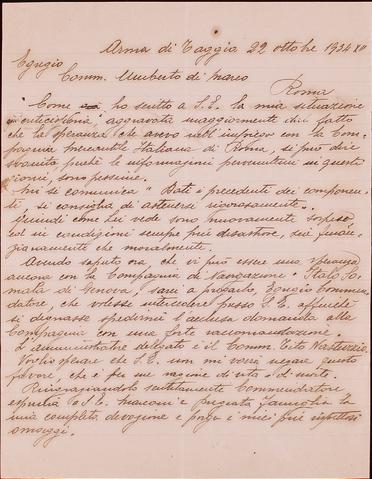 Arma di Taggia 22 ottobre 1934 XII
Egregio
Comm. Umberto di Marco
Roma
Come ho scritto a S.E. la mia situazione
aggravata maggiormente dal fatto
che la speranza che avevo nell'impiego con la Com-
pagnia Mercantile Italiana di Roma, si può dire
svanita perché le informazioni pervenutemi in questi
giorni, sono pessime.
Mi si comunica "Dati i precedenti dei componen-
ti, si consiglia di astenersi rigorosamente".
Quindi come Lei vede sono nuovamente sospeso
ed in condizioni sempre più disastrose, sia finan-
ziariamente che moralmente.
Avendo saputo ora che vi può essere una speranza
ancora con la Compagnia di Navigazione "Italo So-
mala di Genova, sarei a pregarLa, Egregio Commen-
datore, che volesse intercedere presso S.E. affinché
si degnasse spedirmi l'acclusa domanda alla
Compagnia con una forte raccomandazione.
L'amministratore delegato è il Comm. Tito
Voglio sperare che S.E. non mi vorrà negare questo
favore, che è per me ragione di vita o di morte.
Ringraziandola sentitamente Commendatore
a S.E. Marconi e pregiata Famiglia la
mia completa devozione e porgo i miei più rispettosi
omaggi.